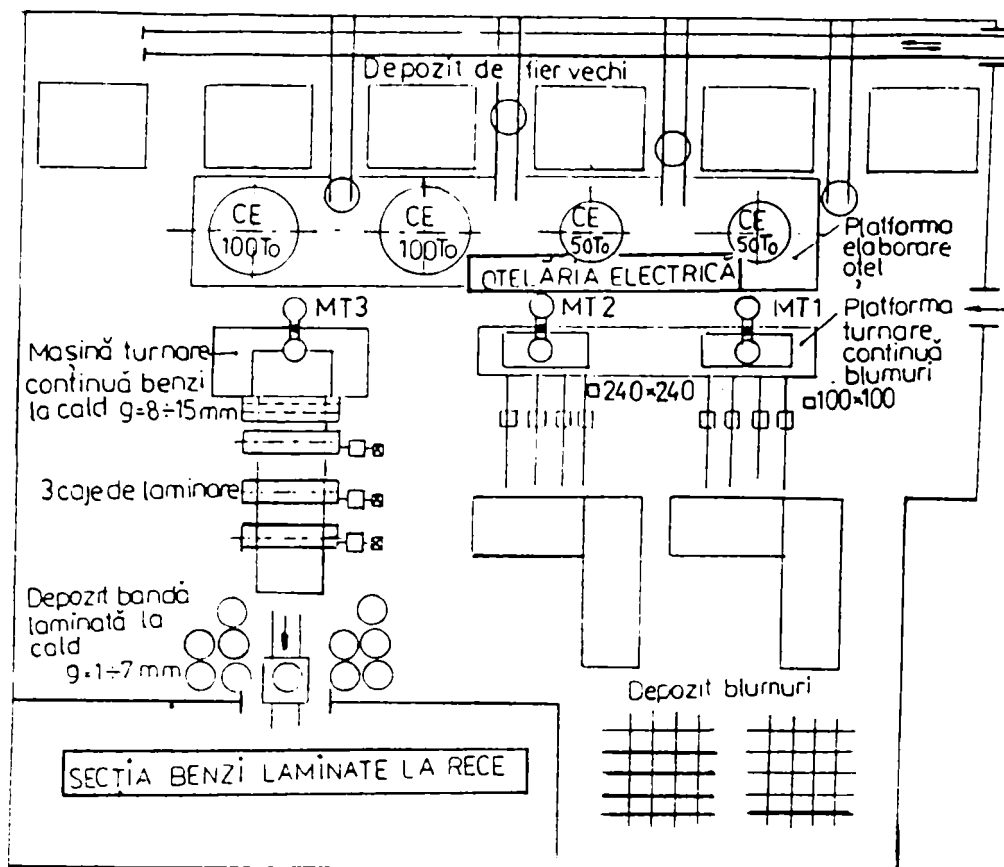 Depozit de fier vechi
CE
100To
CE
100To
CE
50To
CE
50To
Platforma
elaborare
oțel
OTELĂRIA ELECTRICĂ
MT3
MT2
MT1
Platforma
turnare
continuă
blumuri
Mașină turnare
continuă benzi
la cald g=8÷15mm
□240×240
□100×100
3 caje de laminare
Depozit bandă
laminată la
cald
g=1÷7mm
Depozit blumuri
SECȚIA BENZI LAMINATE LA RECE